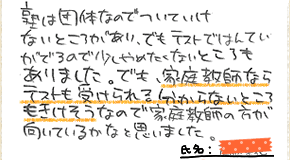 塾は団体なのでついていけ
ないところがあり、でもテストではんてい
がでるので少しやめたくないところも
ありました。でも、家庭教師なら
テストも受けられる。分からないところ
もきけそうなので家庭教師の方が
向いているかなと思いました。
氏名: